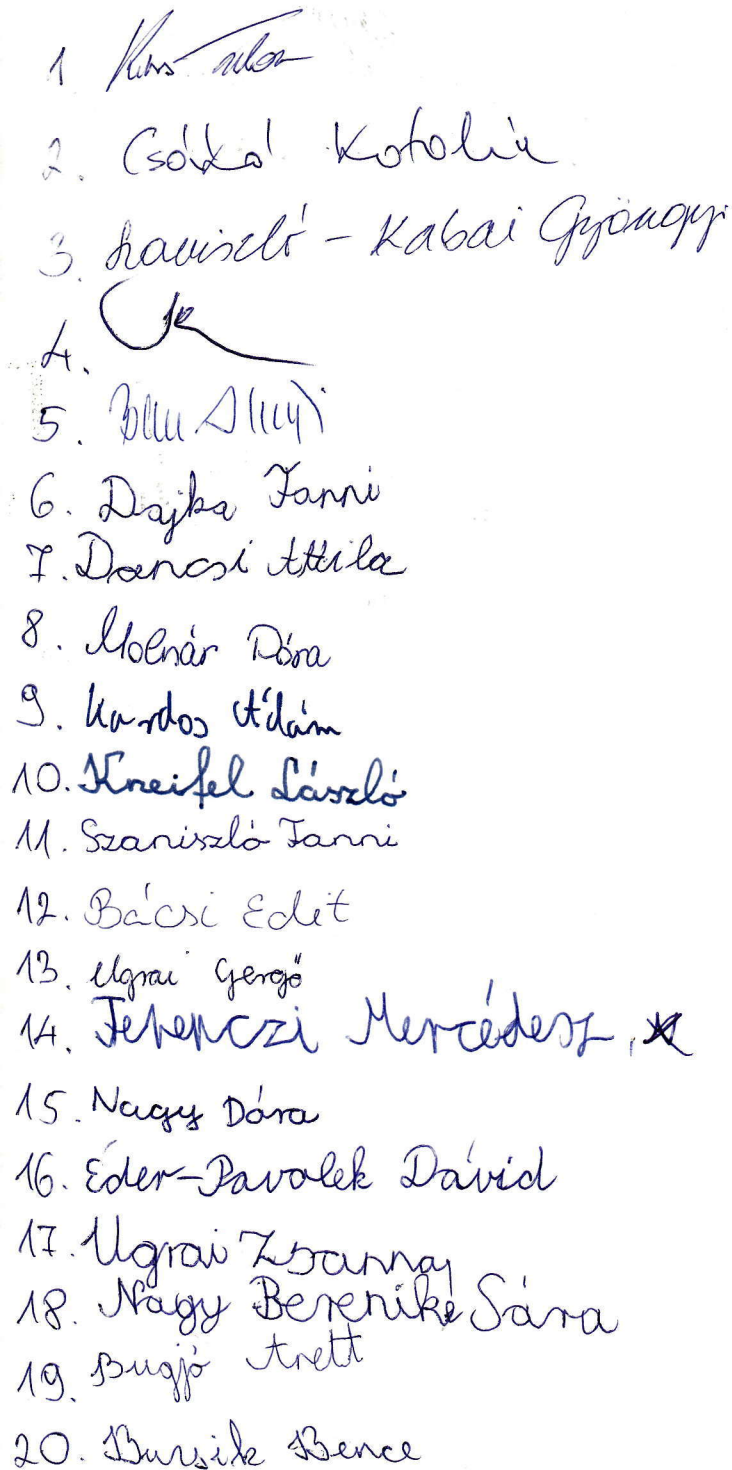 1
2. Csóka Katalin
3. Laviszló - Kabai Gyöngyi
4.
5.
6. Dajka Fanni
7. Dancsi Attila
8. Molnár Dóra
9. Kardos Ádám
10. Kneifel László
11. Szaniszló Fanni
12. Bácsi Edit
13. Ugrai Gergő
14. Ferenczi Mercédesz
15. Nagy Dóra
16. Éder-Pavolek Dávid
17. Ugrai Zsanna
18. Nagy Berenike Sára
19. Bugjó Anett
20. Bursik Bence